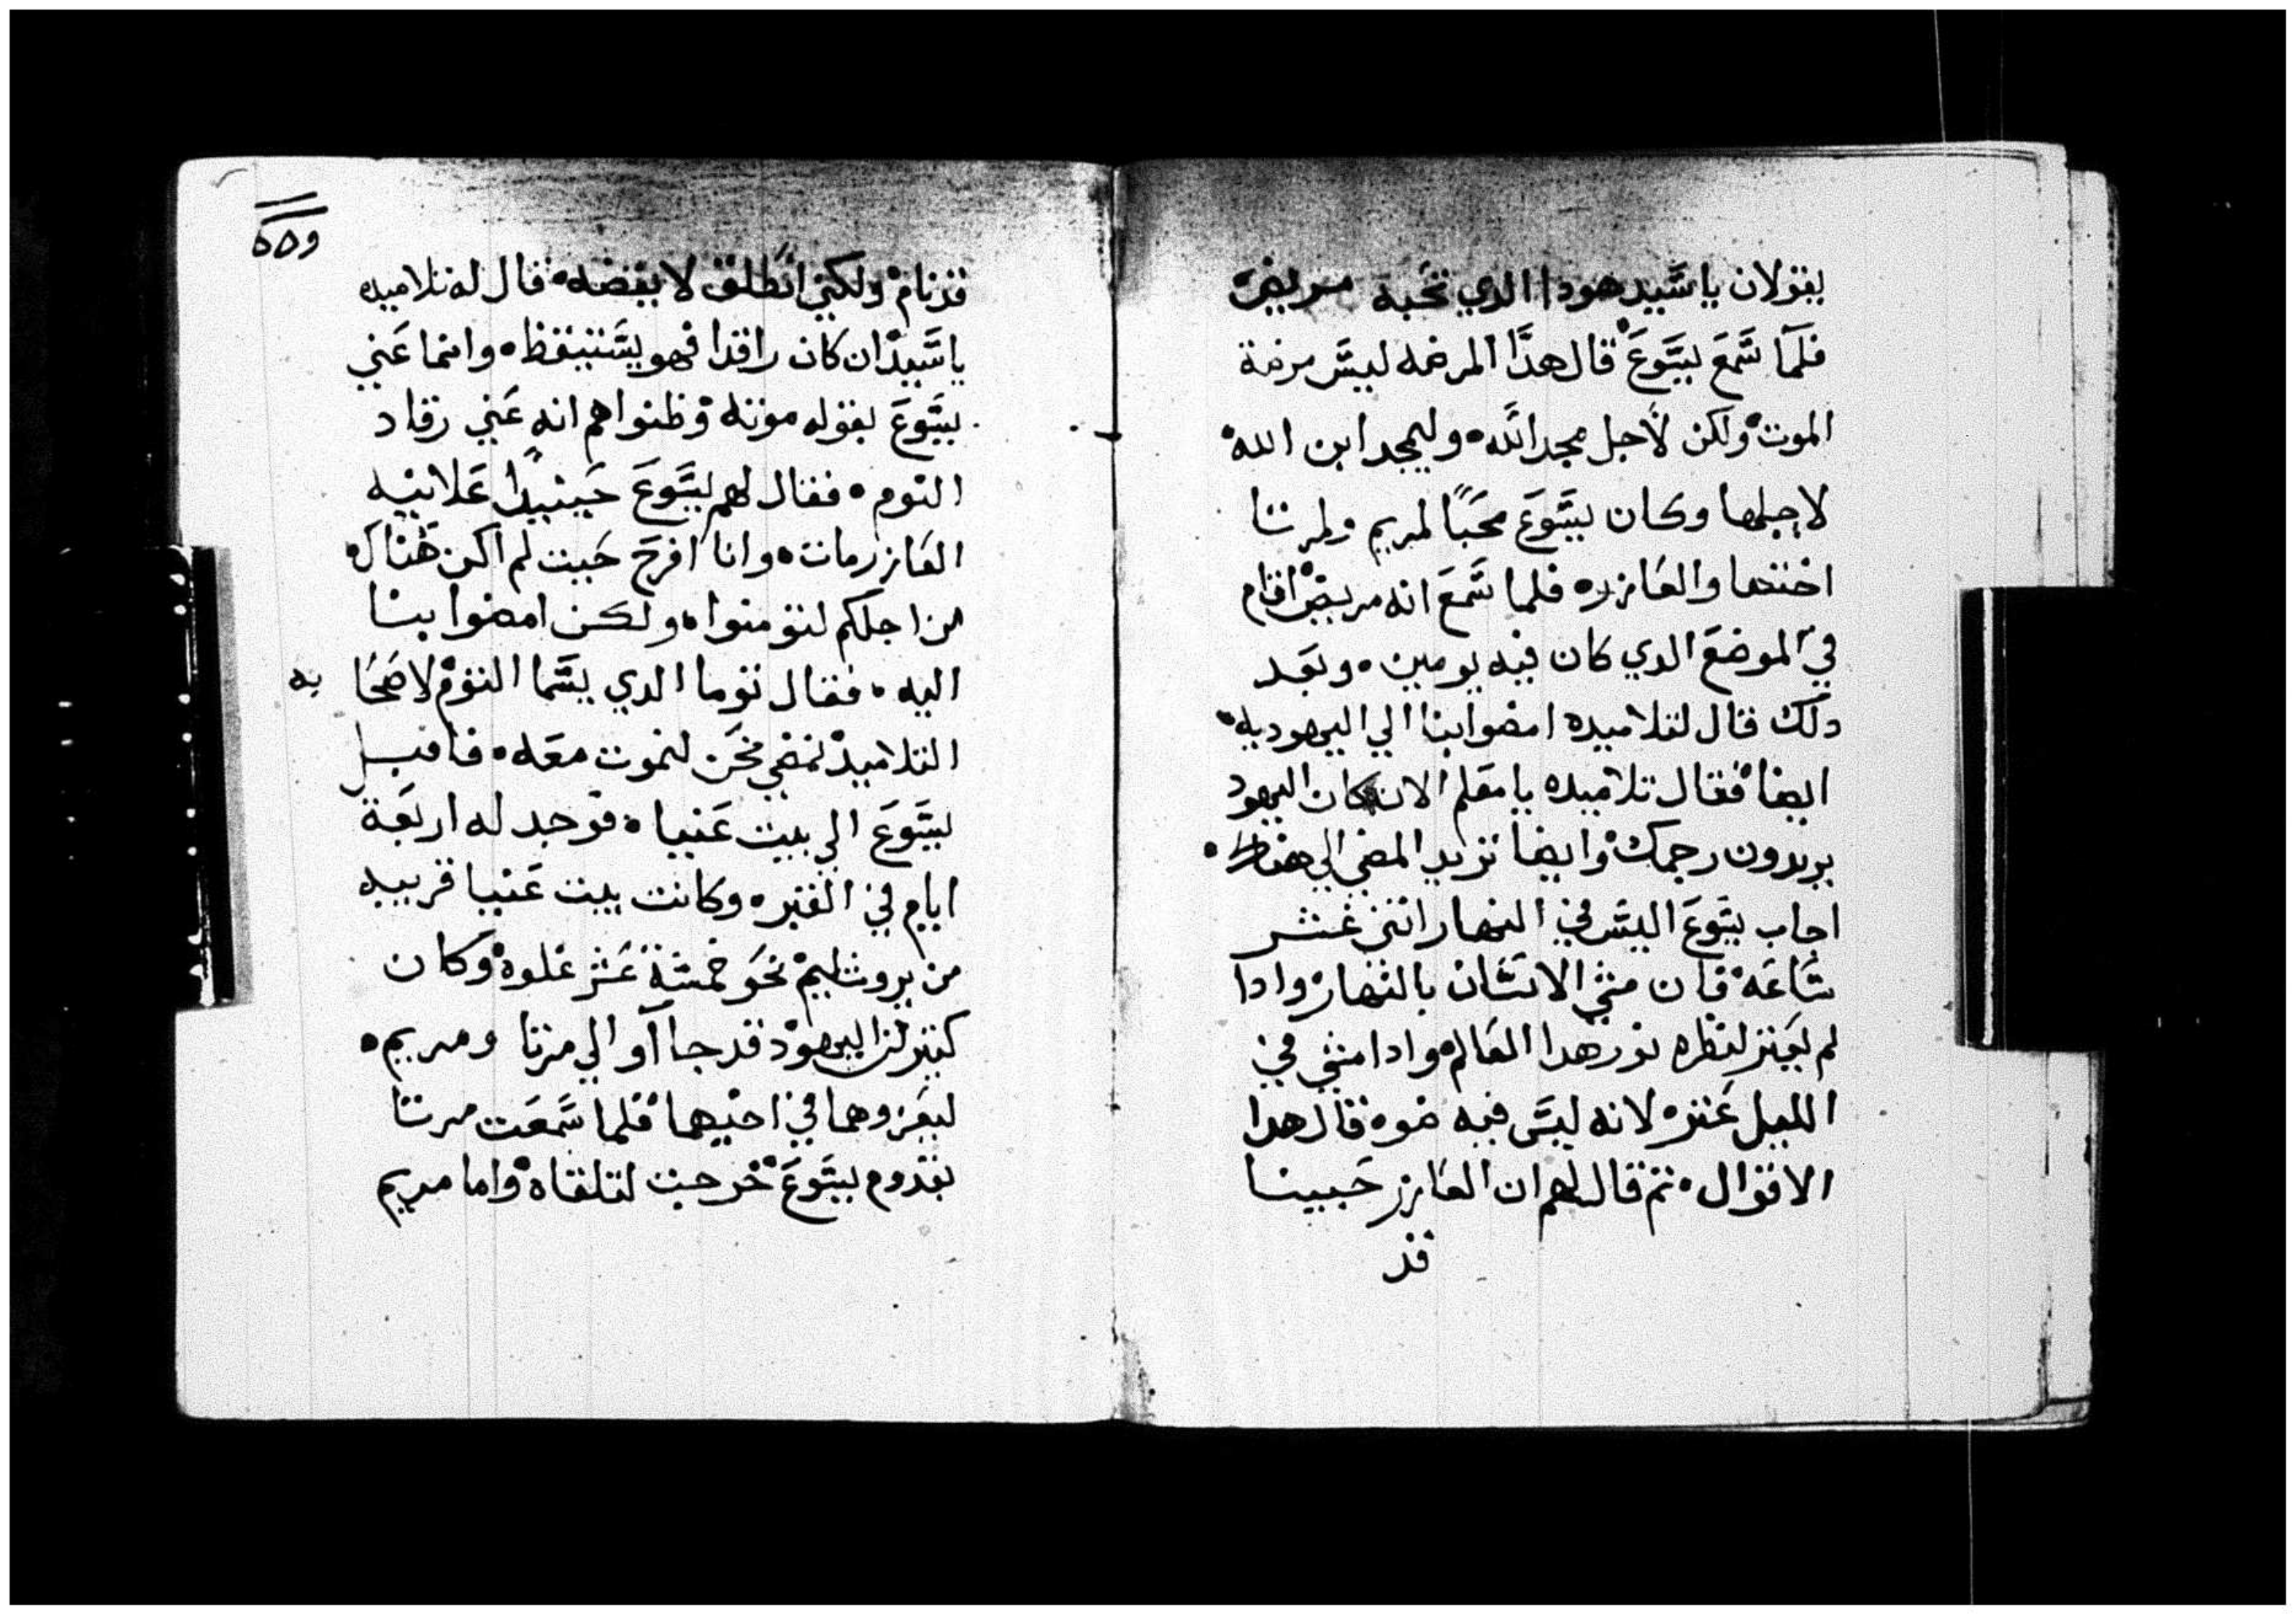 يقولان ياسيد هودا الدي تحبه مريض
فلما سمع يسوع قال هدا المرضه ليس مرضة
الموت ولكن لاجل مجد الله وليمجد ابن الله
لاجلها وكان يسوع محبا لمريم ولمرتا
اختها والعازر فلما سمع انه مريض اقام
في الموضع الدي كان فيه يومين وبعد
دلك قال لتلاميده امضوا بنا الي اليهوديه
ايضا فقال تلاميده يا معلم الان كان اليهود
يريدون رجمك وايضا تريد المضي الي هناك
اجاب يسوع اليس في النهار اتني عشر
ساعه فان مشي الانسان بالنهار وادا
لم يعتر لنظره نور هدا العالم وادا مشي في
الليل عتر لانه ليس فيه ضوه قال هدا
الاقوال تم قال لهم ان العازر حبيبنا
قد
قد نام ولكني انطلق لايقضه قال له تلاميده
ياسيد ان كان راقدا فهو يستيقظ وانما عني
يسوع بقوله موته وظنوا هم انه عني رقاد
النوم فقال لهم يسوع حينيدا علانيه
العازر مات وانا افرح حيت لم اكن هناك
من اجلكم لتومنوا ولكن امضوا بنا
اليه فقال توما الدي يسما التوم لاصحا به
التلاميد نمضي نحن لنموت معه فاقبل
يسوع الي بيت عنيا فوجد له اربعة
ايام في القبر وكانت بيت عنيا قريبه
من يروشليم نحو خمسة عشر غلوة وكان
كتير من اليهود قد جاآو الي مرتا ومريم
ليعزوهما في اخيهما فلما سمعت مرتا
بقدوم يسوع خرجت لتلقاه واما مريم